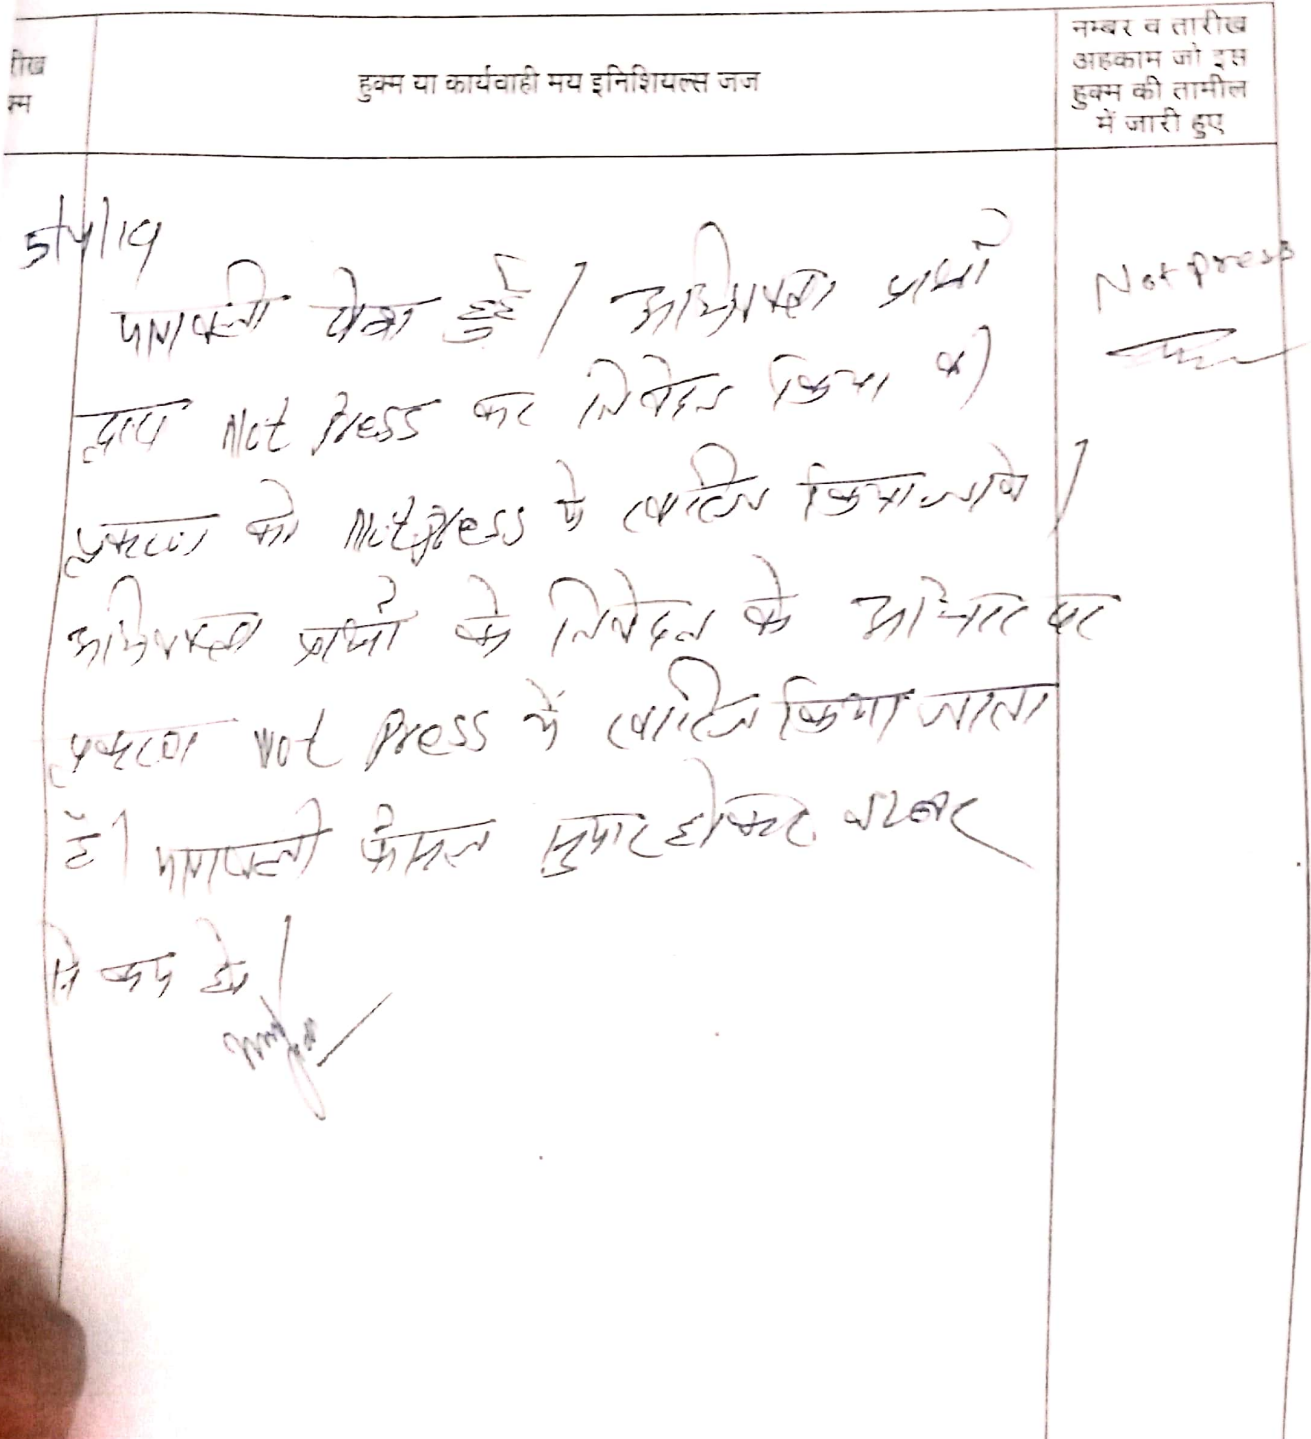 रीख
क्म
हुक्म या कार्यवाही मय इनिशियल्स जज
नम्बर व तारीख
अहकाम जो इस
हुक्म की तामील
में जारी हुए
5/4/19
Not press
पत्रावली पेश हुई। अभिभाषक प्रार्थी
द्वारा Not Press कर निवेदन किया की
प्रकरण को Not press में खारिज किया जावे।
अभिभाषक प्रार्थी के निवेदन के आधार पर
प्रकरण Not Press में खारिज किया जाता
है। पत्रावली फैसल शुमार होकर नम्बर
से कम हो।